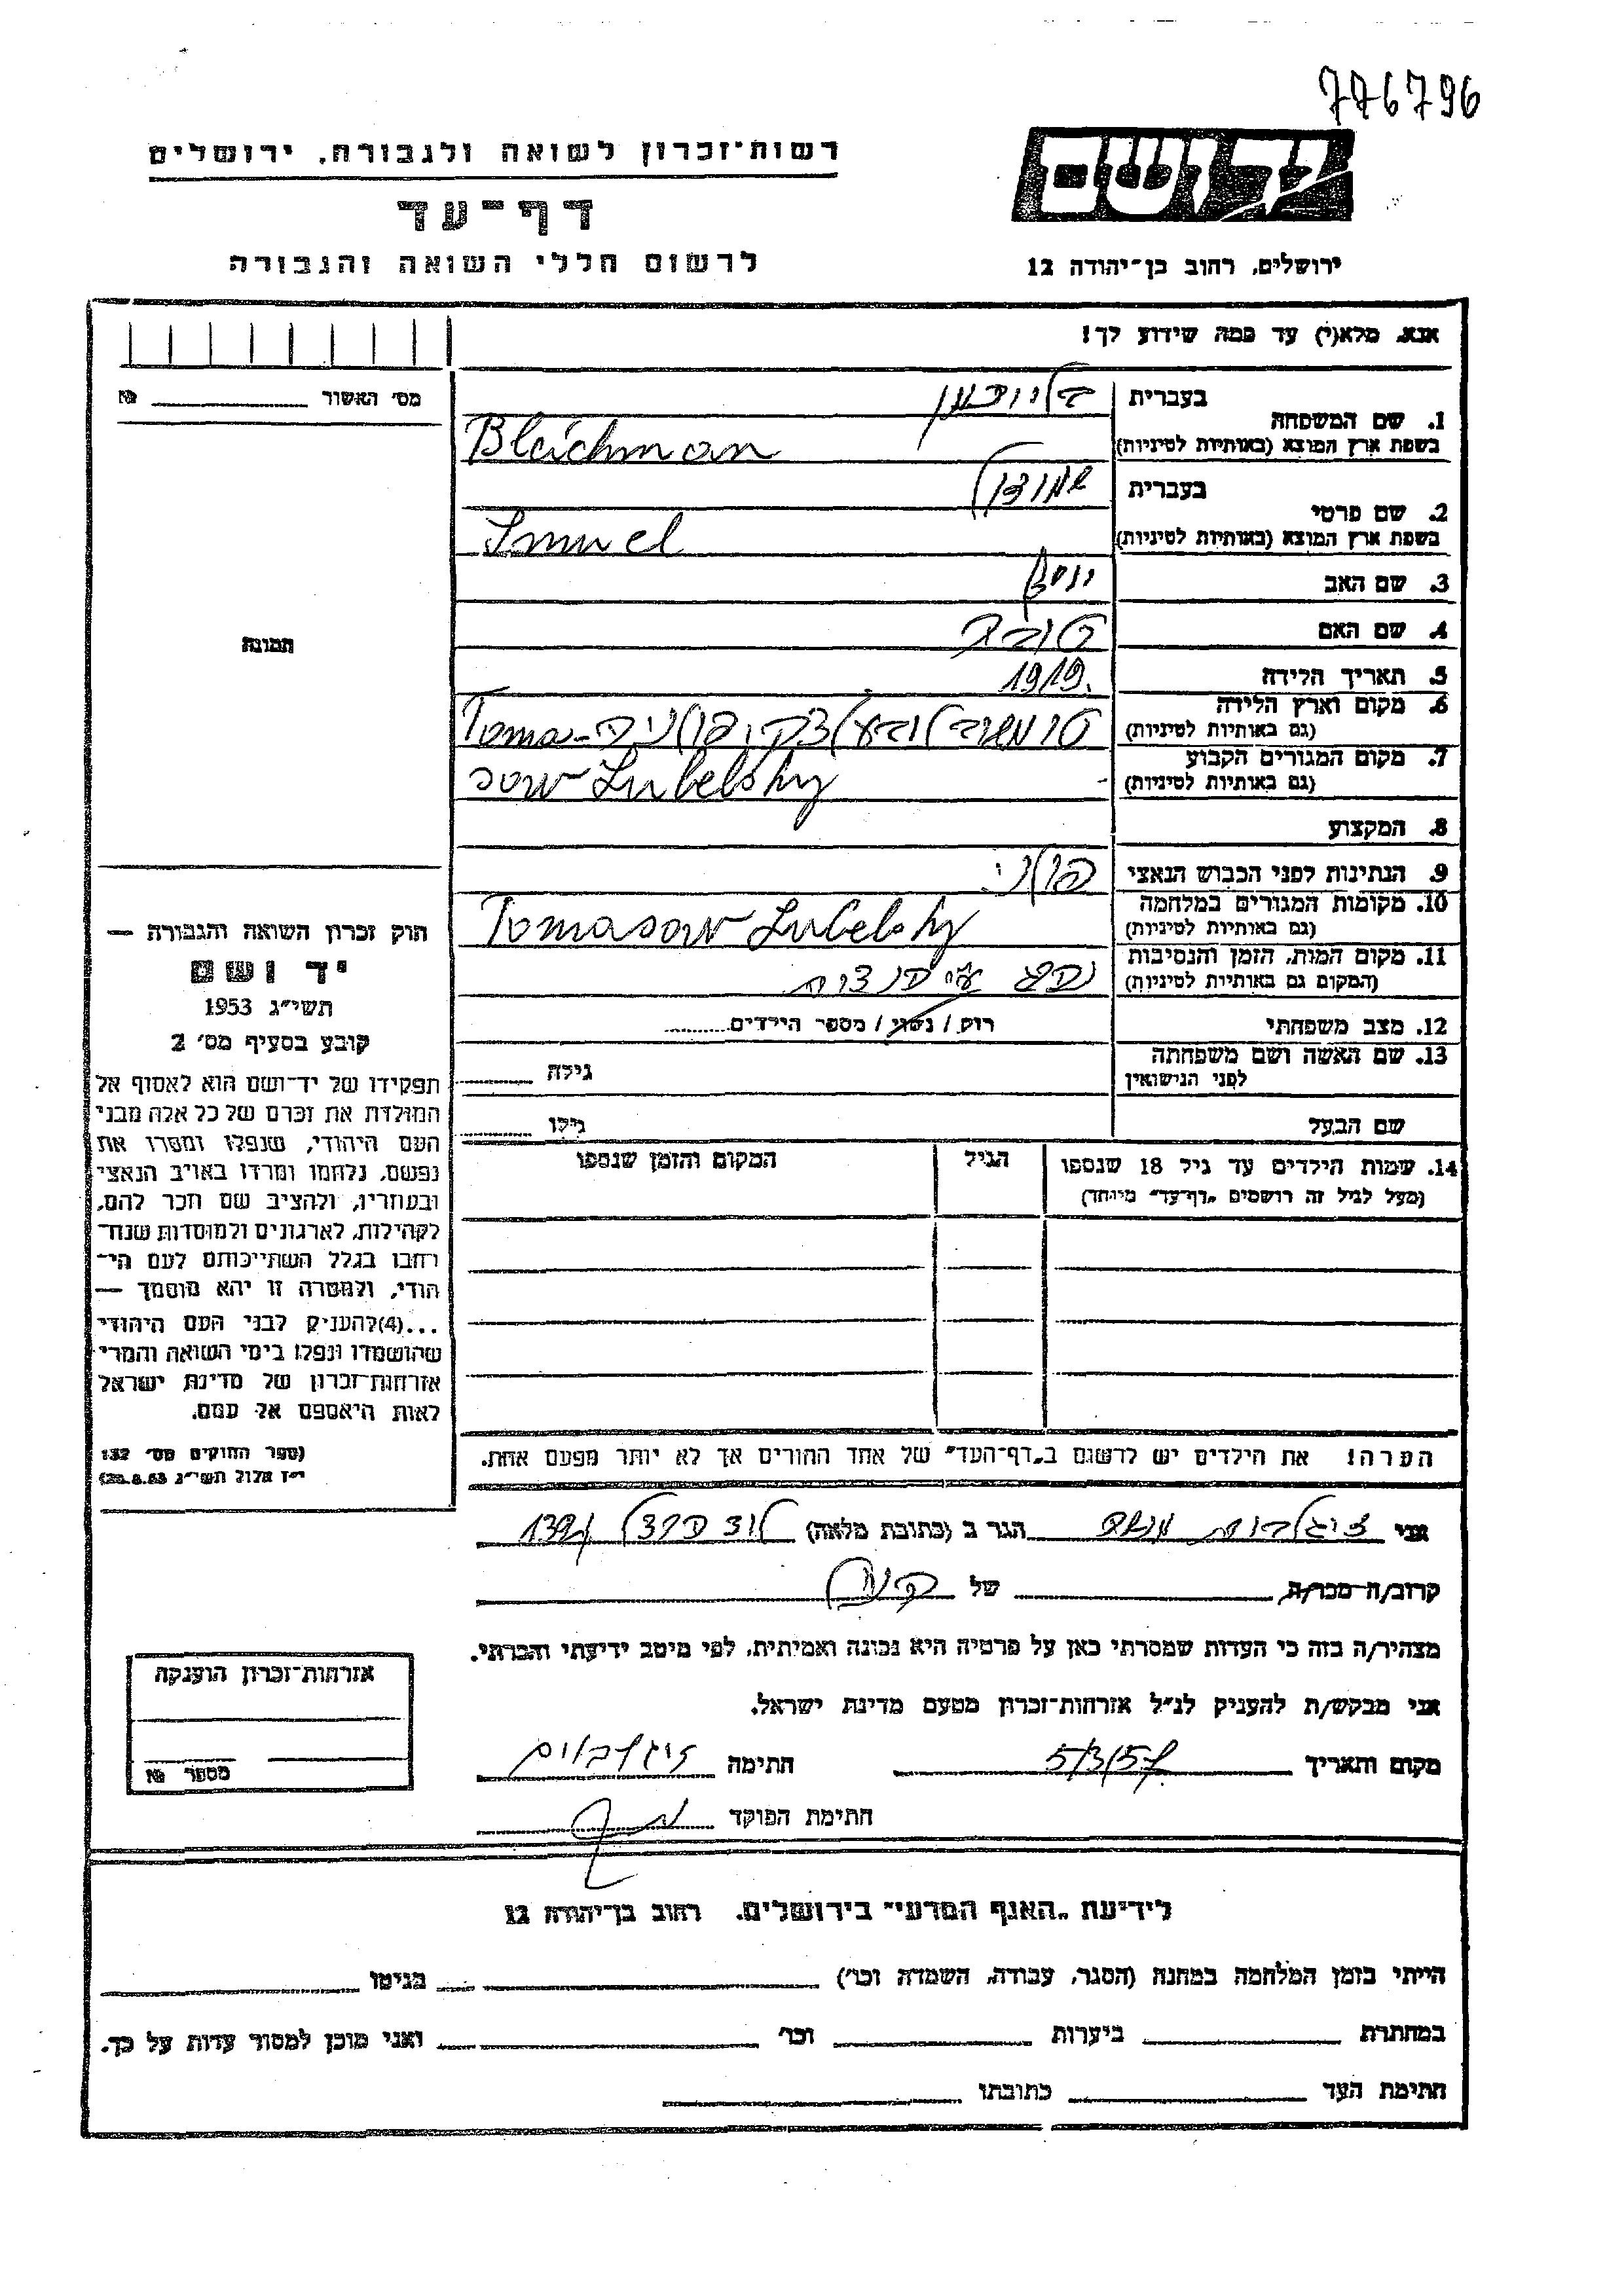 776796
רשות־זכרון לשואה ולגבורה, ירושלים
יד ושם
דף־עד
לרשום חללי השואה והגבורה
ירושלים, רחוב בן־יהודה 12
אנא, מלא(י) עד כמה שידוע לך!
מס' האשור № 
1. שם המשפחה
בעברית
בשפת ארץ המוצא (באותיות לטיניות)
Bleichman
2. שם פרטי
בעברית
בשפת ארץ המוצא (באותיות לטיניות)
Smuel
3. שם האב יוסף
4. שם האם טובה
5. תאריך הלידה 1919.
6. מקום וארץ הלידה
(גם באותיות לטיניות)
Toma-
7. מקום המגורים הקבוע
(גם באותיות לטיניות)
sow Lubelsky
8. המקצוע
9. הנתינות לפני הכבוש הנאצי פולני
10. מקומות המגורים במלחמה
(גם באותיות לטיניות)
Tomasow Lubelsky
11. מקום המות, הזמן והנסיבות
(המקום גם באותיות לטיניות)
12. מצב משפחתי רוק / נשוי / מספר הילדים
13. שם האשה ושם משפחתה
לפני הנישואין
גילה
שם הבעל גילו
14. שמות הילדים עד גיל 18 שנספו הגיל המקום והזמן שנספו
(מעל לגיל זה רושמים „דף־עד" מיוחד)
הערה! את הילדים יש לרשום ב„דף־העד" של אחד ההורים אך לא יותר מפעם אחת.
תמונה
חוק זכרון השואה והגבורה —
יד ושם
תשי"ג 1953
קובע בסעיף מס' 2
תפקידו של יד־ושם הוא לאסוף אל
המולדת את זכרם של כל אלה מבני
העם היהודי, שנפלו ומסרו את
נפשם, נלחמו ומרדו באויב הנאצי
ובעוזריו, ולהציב שם וזכר להם,
לקהילות, לארגונים ולמוסדות שנח־
רבו בגלל השתייכותם לעם הי־
הודי, ולמטרה זו יהא מוסמך —
...(4)להעניק לבני העם היהודי
שהושמדו ונפלו בימי השואה והמרי
אזרחות־זכרון של מדינת ישראל
לאות היאספם אל עמם.
(ספר החוקים מס' 132
י"ז אלול תשי"ג 28.8.53)
אני הגר ב (כתובת מלאה)
קרוב/ה מכר/ה של
מצהיר/ה בזה כי העדות שמסרתי כאן על פרטיה היא נכונה ואמיתית, לפי מיטב ידיעתי והכרתי.
אני מבקש/ת להעניק לנ"ל אזרחות־זכרון מטעם מדינת ישראל.
מקום ותאריך 5/3/57 חתימה
חתימת הפוקד
אזרחות־זכרון הוענקה
מספר №
לידיעת „האגף המדעי" בירושלים. רחוב בן־יהודה 12
הייתי בזמן המלחמה במחנה (הסגר, עבודה, השמדה וכו') בגיטו
במחתרת ביערות וכו' ואני מוכן למסור עדות על כך.
חתימת העד כתובתו